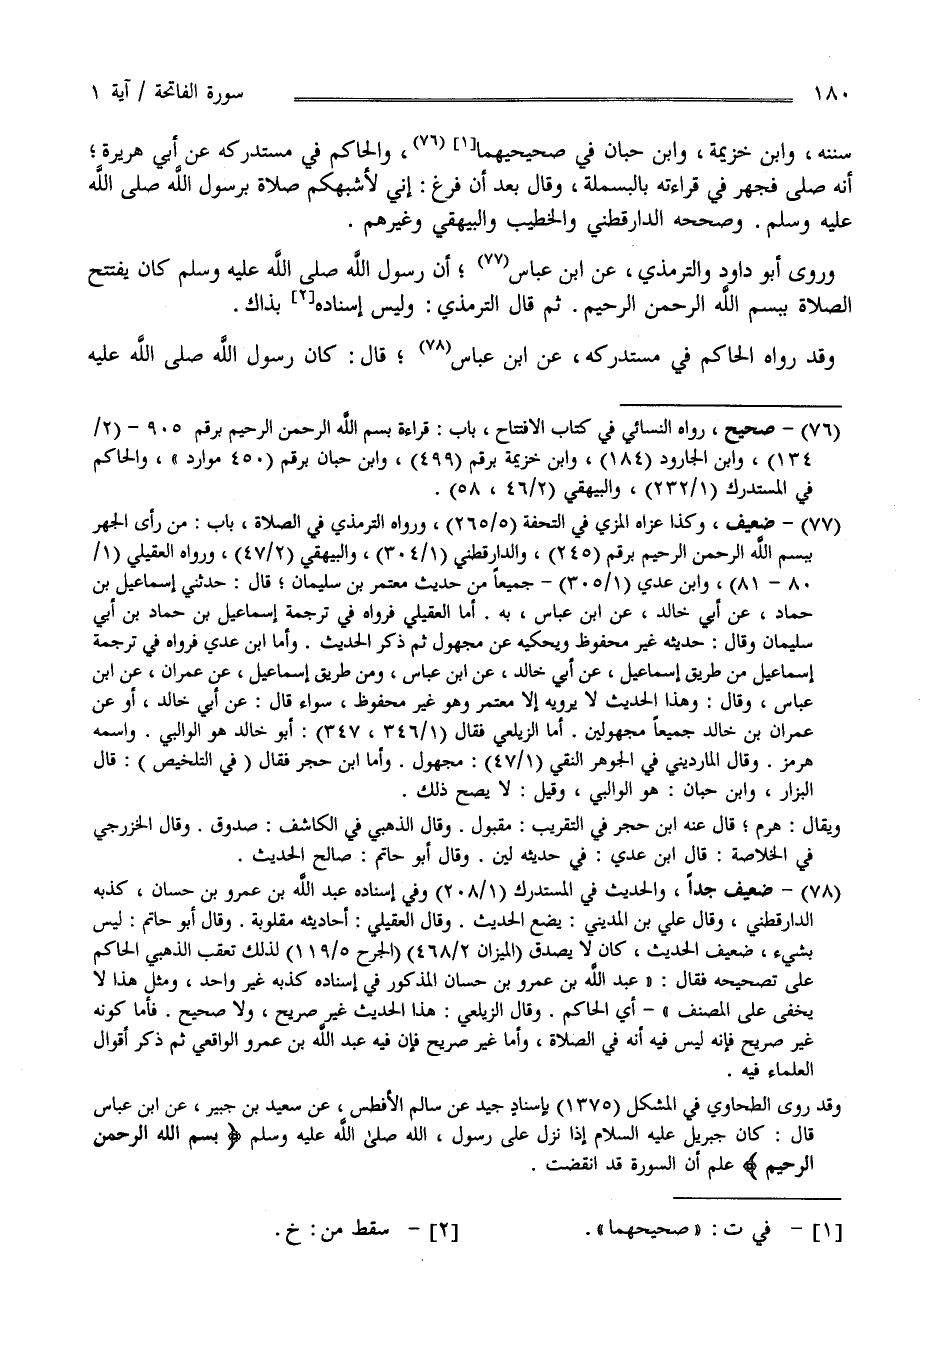 ١٨٠ سورة الفاتحة / آية ١
سننه ، وابن خزيمة ، وابن حبان في صحيحيهما[١] (٧٦) ، والحاكم في مستدركه عن أبي هريرة ؛
أنه صلى فجهر في قراءته بالبسملة ، وقال بعد أن فرغ : إني لأشبهكم صلاة برسول اللَّه صلى اللَّه
عليه وسلم . وصححه الدارقطني والخطيب والبيهقي وغيرهم .
وروى أبو داود والترمذي ، عن ابن عباس(٧٧) ؛ أن رسول اللَّه صلى اللَّه عليه وسلم كان يفتتح
الصلاة ببسم اللَّه الرحمن الرحيم . ثم قال الترمذي : وليس إسناده[٢] بذاك .
وقد رواه الحاكم في مستدركه ، عن ابن عباس(٧٨) ؛ قال : كان رسول اللَّه صلى اللَّه عليه
(٧٦) – صحيح ، رواه النسائي في كتاب الافتتاح ، باب : قراءة بسم اللَّه الرحمن الرحيم برقم ٩٠٥ – (٢/
١٣٤) ، وابن الجارود (١٨٤) ، وابن خزيمة برقم (٤٩٩) ، وابن حبان برقم (٤٥٠ موارد » ، والحاكم
في المستدرك (٢٣٢/١) ، والبيهقي (٤٦/٢ ، ٥٨) .
(٧٧) – ضعيف ، وكذا عزاه المزي في التحفة (٢٦٥/٥) ، ورواه الترمذي في الصلاة ، باب : من رأى الجهر
ببسم اللَّه الرحمن الرحيم برقم (٢٤٥) ، والدارقطني (٣٠٤/١) ، والبيهقي (٤٧/٢) ، ورواه العقيلي (١/
٨٠ – ٨١) ، وابن عدي (٣٠٥/١) – جميعاً من حديث معتمر بن سليمان ؛ قال : حدثني إسماعيل بن
حماد ، عن أبي خالد ، عن ابن عباس ، به . أما العقيلي فرواه في ترجمة إسماعيل بن حماد بن أبي
سليمان وقال : حديثه غير محفوظ ويحكيه عن مجهول ثم ذكر الحديث . وأما ابن عدي فرواه في ترجمة
إسماعيل من طريق إسماعيل ، عن أبي خالد ، عن ابن عباس ، ومن طريق إسماعيل ، عن عمران ، عن ابن
عباس ، وقال : وهذا الحديث لا يرويه إلا معتمر وهو غير محفوظ ، سواء قال : عن أبي خالد ، أو عن
عمران بن خالد جميعاً مجهولين . أما الزيلعي فقال (٣٤٦/١ ، ٣٤٧) : أبو خالد هو الوالبي . واسمه
هرمز . وقال المارديني في الجوهر النقي (٤٧/١) : مجهول . وأما ابن حجر فقال ( في التلخيص ) : قال
البزار ، وابن حبان : هو الوالبي ، وقيل : لا يصح ذلك .
ويقال : هرم ؛ قال عنه ابن حجر في التقريب : مقبول . وقال الذهبي في الكاشف : صدوق . وقال الخزرجي
في الخلاصة : قال ابن عدي : في حديثه لين . وقال أبو حاتم : صالح الحديث .
(٧٨) – ضعيف جداً ، والحديث في المستدرك (٢٠٨/١) وفي إسناده عبد اللَّه بن عمرو بن حسان ، كذبه
الدارقطني ، وقال علي بن المديني : يضع الحديث . وقال العقيلي : أحاديثه مقلوبة . وقال أبو حاتم : ليس
بشيء ، ضعيف الحديث ، كان لا يصدق (الميزان ٤٦٨/٢) (الجرح ١١٩/٥) لذلك تعقب الذهبي الحاكم
على تصحيحه فقال : « عبد اللَّه بن عمرو بن حسان المذكور في إسناده كذبه غير واحد ، ومثل هذا لا
يخفى على المصنف » – أي الحاكم . وقال الزيلعي : هذا الحديث غير صريح ، ولا صحيح . فأما كونه
غير صريح فإنه ليس فيه أنه في الصلاة ، وأما غير صريح فإن فيه عبد اللَّه بن عمرو الواقعي ثم ذكر أقوال
العلماء فيه .
وقد روى الطحاوي في المشكل (١٣٧٥) بإسنادٍ جيد عن سالم الأفطس ، عن سعيد بن جبير ، عن ابن عباس
قال : كان جبريل عليه السلام إذا نزل على رسول ، الله صلىٰ اللَّه عليه وسلم ﴿ بسم الله الرحمن
الرحيم ﴾ علم أن السورة قد انقضت .
[١] – في ت : « صحيحهما» . [٢] – سقط من : خ .